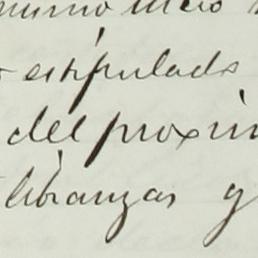 estipulado
del proxim
libranzas y